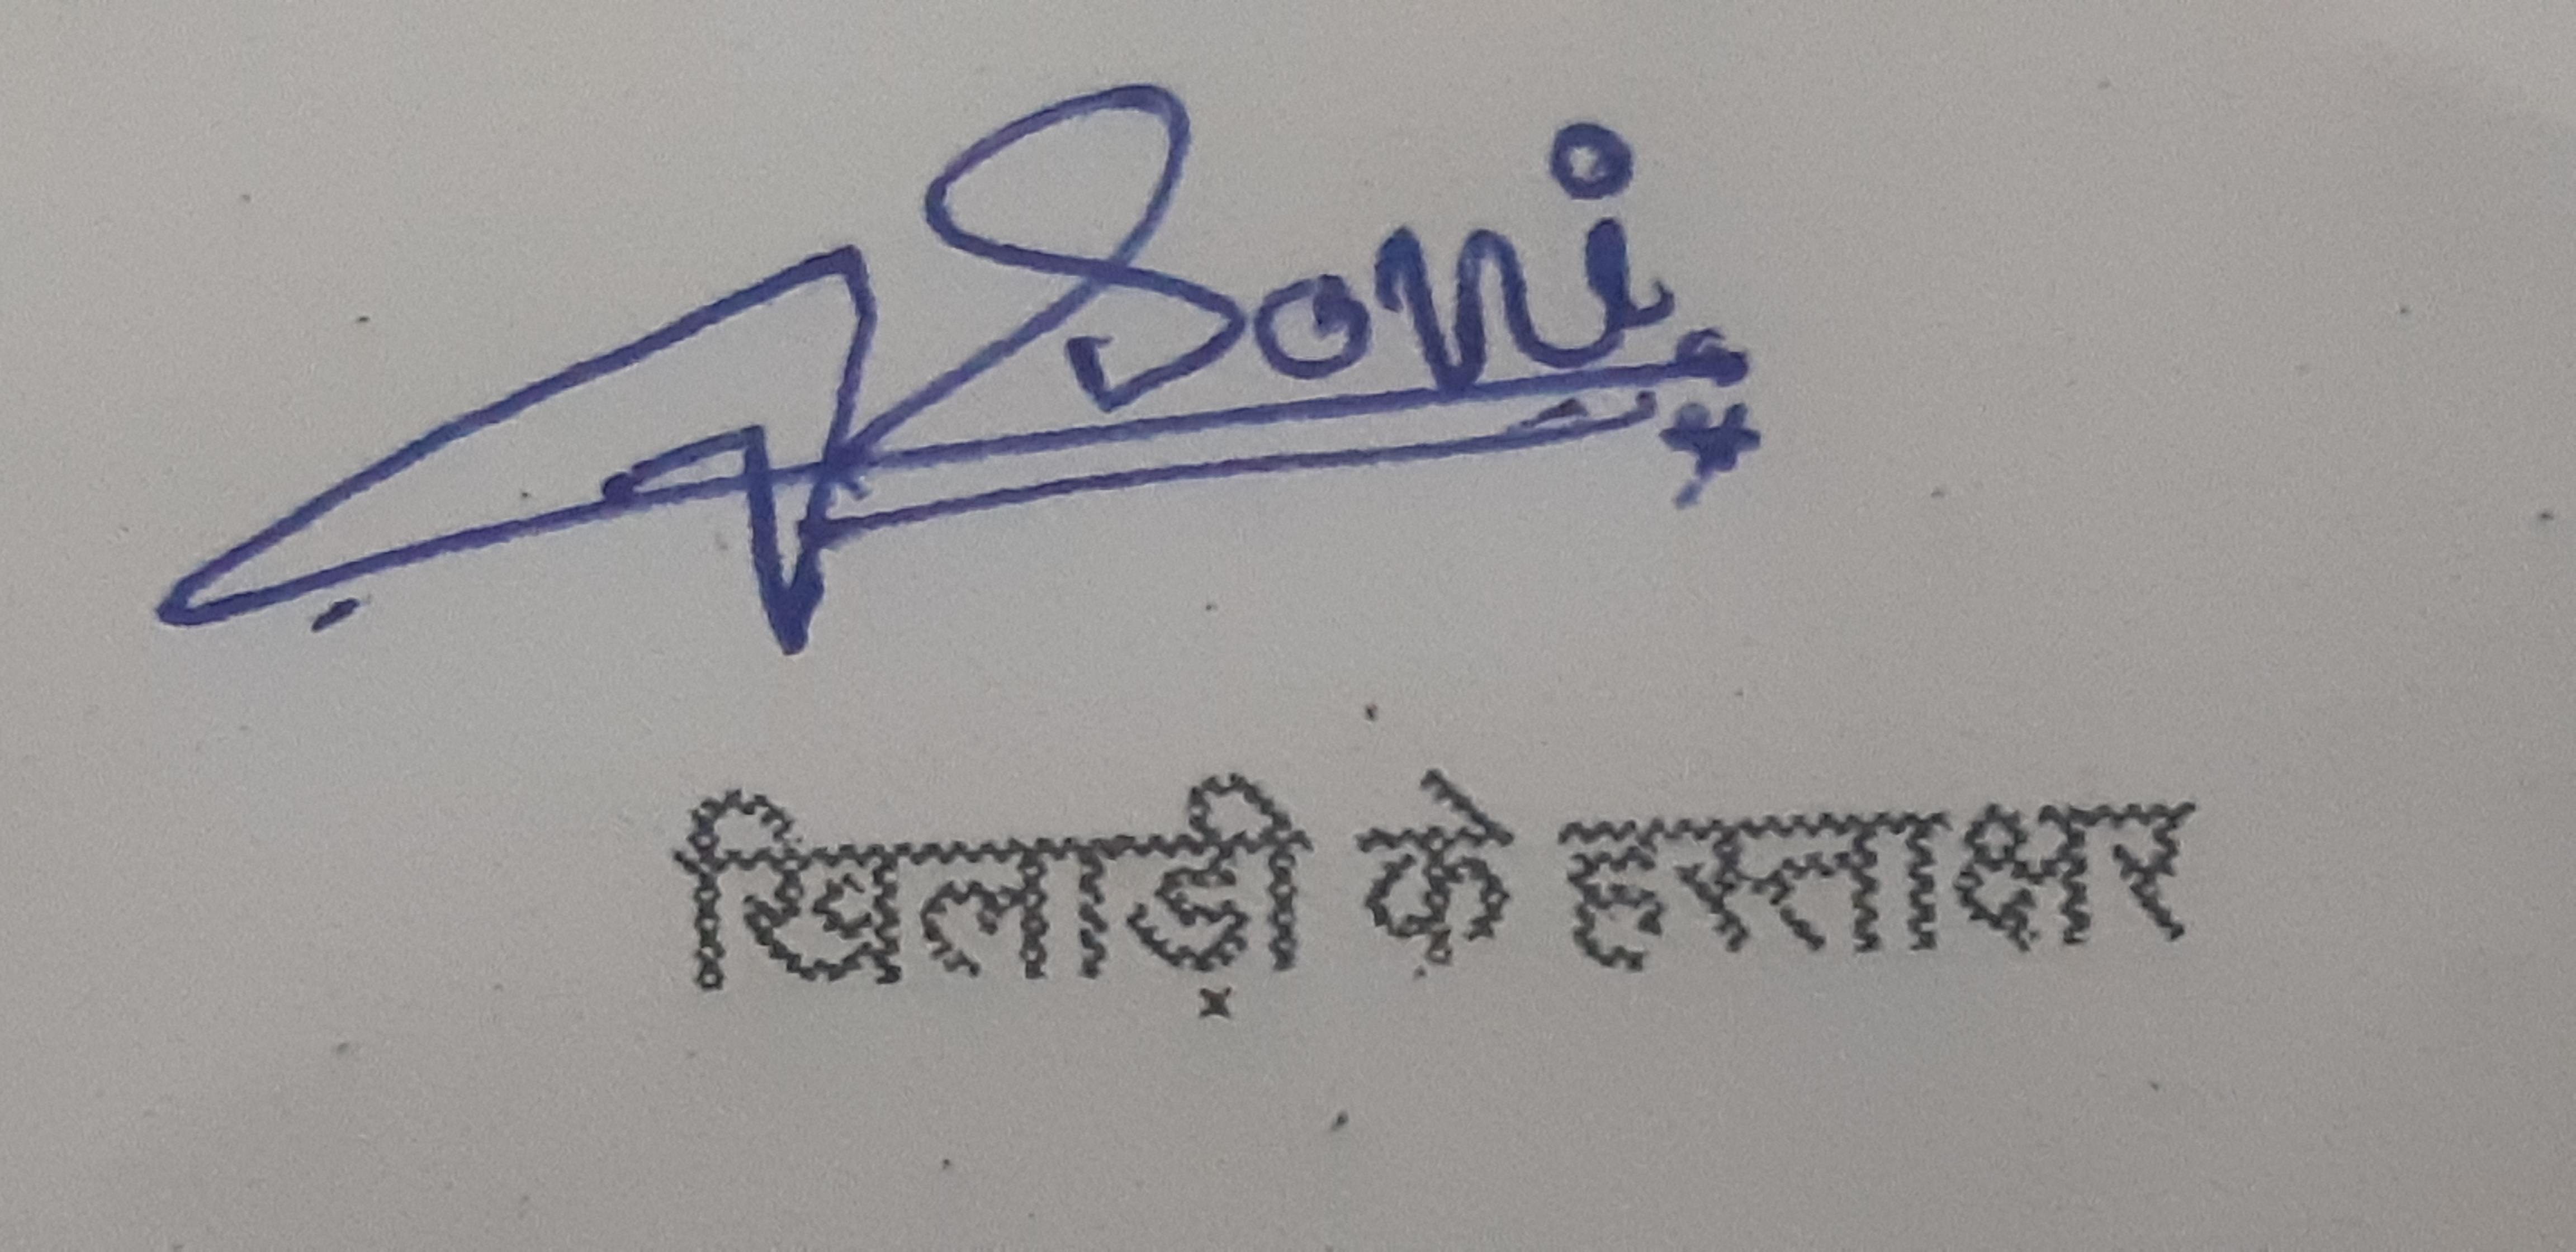 Soni
खिलाड़ी के हस्ताक्षर